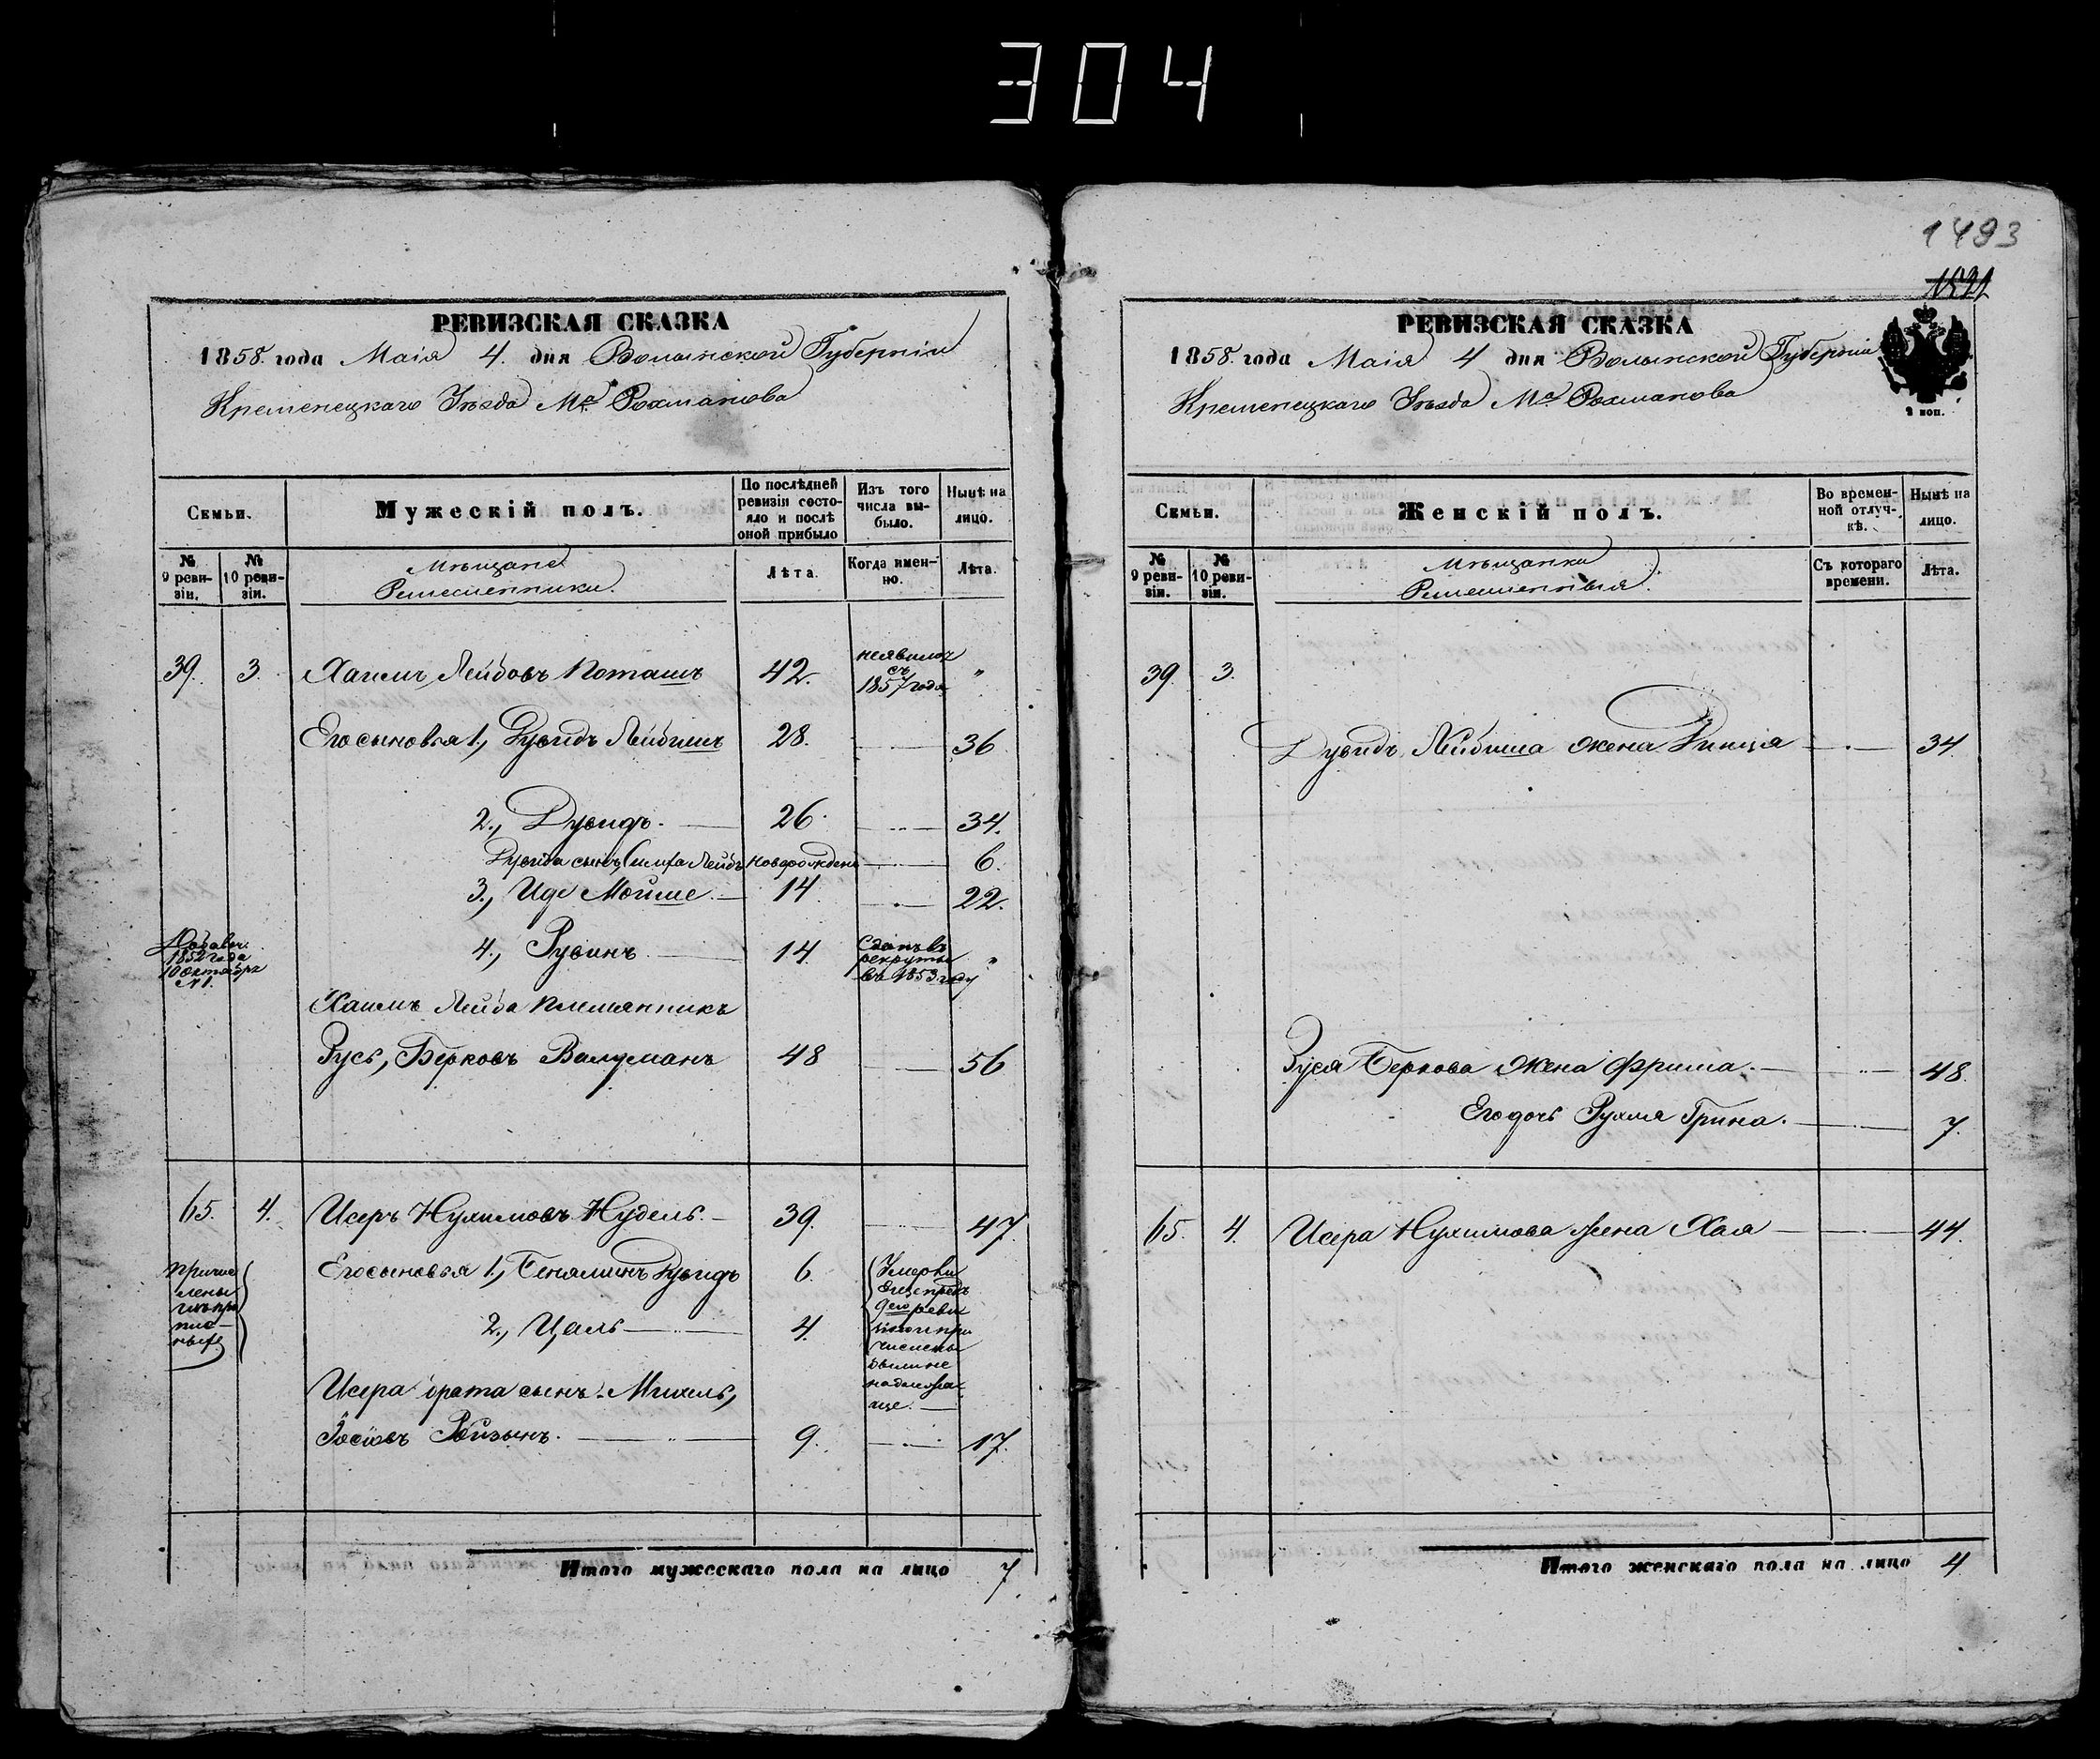 304
1493
1521
РЕВИЗСКАЯ СКАЗКА
1858 года Маія 4. дня Волынской Губерніи
Кременецкаго Уѣзда Мѣ Рохманова
Семьи.
Мужескій полъ.
По послѣдней ревизіи состояло и послѣ оной прибыло
Изъ того числа выбыло.
Нынѣ на лицо.
№ 9 ревизіи.
№ 10 ревизіи.
Мѣщане
Ремесленники.
Лѣта.
Когда именно.
Лѣта.
39. 3. Хаимъ Лейбовъ Поташъ 42. неявился съ 1857 года "
Его сыновья 1., Дувидъ Лейбишъ 28. 36
2., Дувидъ. 26. 34.
Дувида сынъ Симха Лейбъ новорожденъ 6.
3., Иде Мойше. 14 22.
Добавоч.
1852 года
10 октября
№ 1.
4., Рувинъ 14. Сданъ въ рекруты въ 1853 году "
Хаимъ Лейба племянникъ
Зусь, Берковъ Валуманъ 48 56
65. 4. Исеръ Нухимовъ Нудель. 39. 47.
причис
лены
Его сыновья 1., Беняминъ Дувидъ 6.
2., Цаль 4.
Умерли
Еще предъ
9ею реви
зіею и при
числены
были не
надлежа
ще.
Исера брата сынъ Михель,
Іосіовъ Ройзынъ. 9. 17.
Итого мужескаго пола на лицо 7.
РЕВИЗСКАЯ СКАЗКА
1858. года Маія 4 дня Волынской Губерніи
Кременецкаго Уѣзда Мѣ Рохманова
2 коп.
Семьи.
Женскій полъ.
Во временной отлучкѣ.
Нынѣ на лицо.
№ 9 ревизіи.
№ 10 ревизіи.
Мѣщанки
Ремесленныя.
Съ котораго времени.
Лѣта.
39. 3.
Дувидъ Лейбиша жена Ривця 34
Зуся Беркова жена Фрима. 48.
Его дочь Рухля Грина. 7.
65. 4. Исера Нухимова жена Хая 44.
Итого женскаго пола на лицо 4